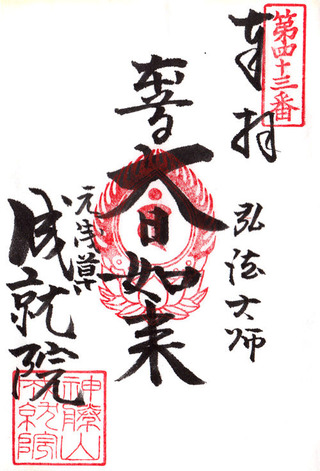 第四十三番
奉拝
弘法大師
本尊
大日如来
元浅草
成就院
神勝山
成就院